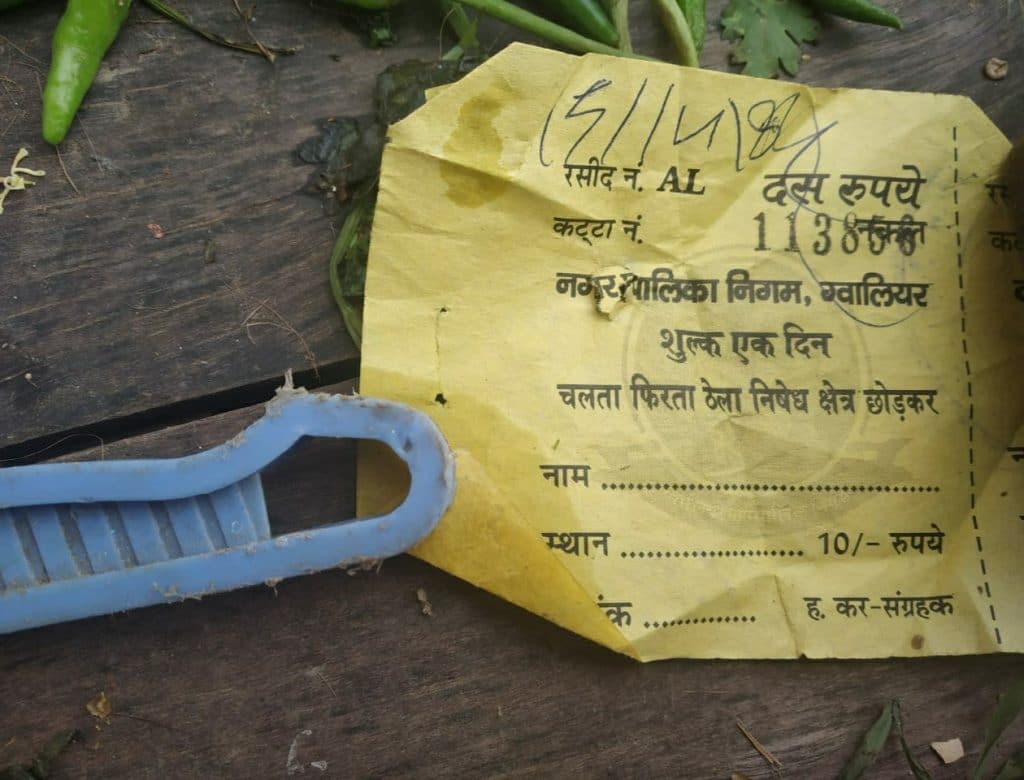 रसीद नं. AL दस रुपये
कट्टा नं.
नगर पालिका निगम, ग्वालियर
शुल्क एक दिन
चलता फिरता ठेला निषेध क्षेत्र छोड़कर
नाम ........................................
स्थान ...................... 10/- रुपये
............. ह. कर-संग्रहक